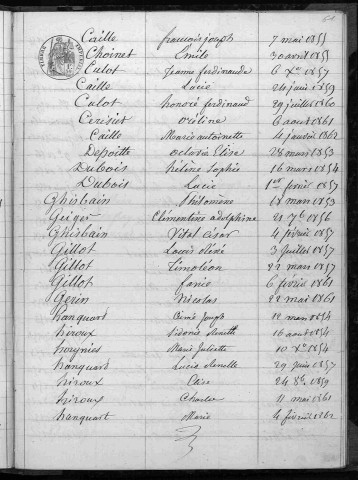 Caille françois joseph 7 mai 1855
Choinet Emile 30 avril 1855
Culot Jeanne ferdinande 6 Xbre 1857
Caille Lucie 26 juin 1859
Culot honoré ferdinand 29 juillet 1860
Cerisier Oréline 6 aout 1861
Caille Marie antoinette 4 janvier 1862
Octavie Elise 28 mars 1853
Dubois héléne Sophie 16 mars 1854
Dubois Lucie 1er fevrier 1857
Ghisbain Philomène 18 mars 1853
Geiger Clémentine adolphine 21 7bre 1856
Ghisbain Vital César 4 février 1857
Gillot Louis 3 juillet 1857
Gillot Timoléon 22 mars 1857
Gillot fanie 6 février 1861
Gerin Nicolas 22 mai 1861
hanquard Aimé Joseph 12 mars 1854
hiroux 16 aout 1854
Marie Juliette 10 Xbre 1854
hanquard Lucie 29 juin 1857
hiroux 24 8bre 1859
hiroux Charles 11 mai 1861
hanquart Marie 4 février 1862